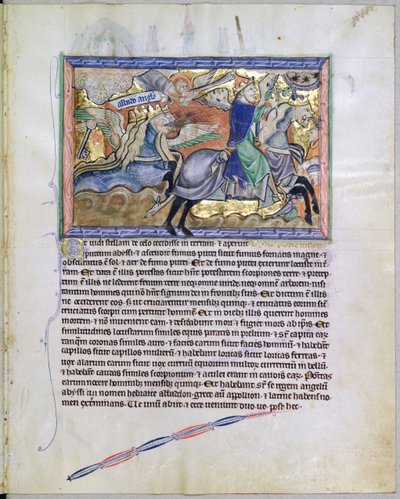 abaddo angls
Et uidi stellam de celo cecidisse in terram · & aperuit
puteum abyssi · & ascendit fumus putei sicut fumus fornacis magne · &
obscuratus est sol · & aer de fumo putei · Et de fumo putei exierunt locuste in t̄
ram · Et data est illis potestas sicut hn̄t potestatem scorpiones terre · & precep
tum ē illis ne lederent fenum terre neqꝫ omne uiride · neqꝫ omnem arborem · nisi
tantum homines qui non hn̄t signum dei in frontibꝫ suis · Et dictum ē illis
ne occiderent eos · s; ut cruciarentur mensibꝫ quinqꝫ · & cruciatus eorum sic
cruciatus scorpii cum percutit hominem · Et in diebꝫ illis querent homines
mortem · & non inuenient eam · & desiderabunt mori · & fugiet mors ab ipsis · Et
similitudines locustarum similes equis paratis in prelium · & super capita earꝫ
tanqm̄ corone similes auro · & facies earum sicut facies hominum · & habebant
capillos sicut capillos mulierum · & habebant loricas sicut loricas ferreas · &
uox alarum earum sicut uox curruum equorum multorum currentium in bellū ·
& habebant caudas similes scorpionum · & aculei erant in caudis earꝫ · Potestas
earum nocere hominibꝫ mensibꝫ quinqꝫ · Et habebant sup se regem angelum
abyssi cui nomen hebraice abaddon · grece aūt appollion · & latine habens no
men exterminans · Ve unum abiit · & ecce ueniunt duo ue post hec ·